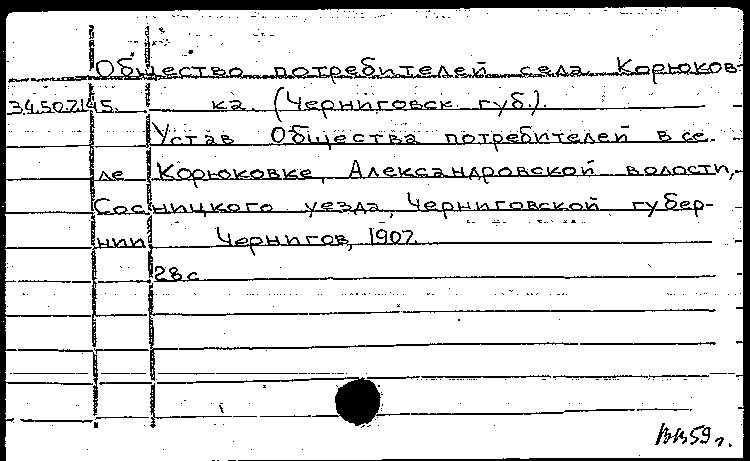 Общество потребителей села Корюков-
34.50.7.145. ка. (Черниговск. губ.).
Устав Общества потребителей в се-
ле Корюковке, Александровской волости,
Сосницкого уезда, Черниговской губер-
нии Чернигов, 1907.
28 с